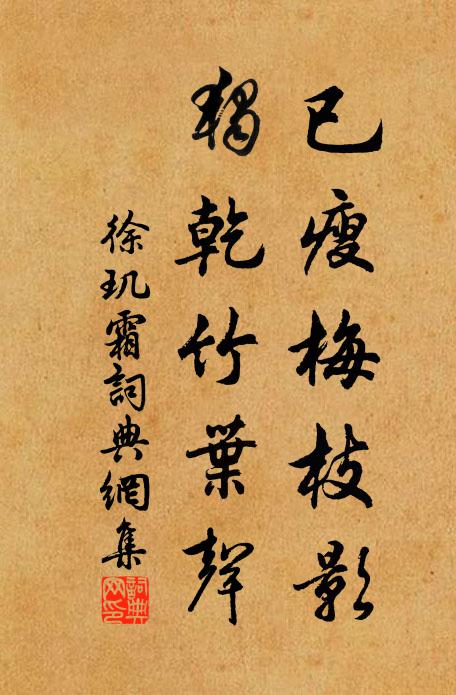 已瘦梅枝影
獨乾竹葉聲
徐玑霜詞典網集
詞典網印